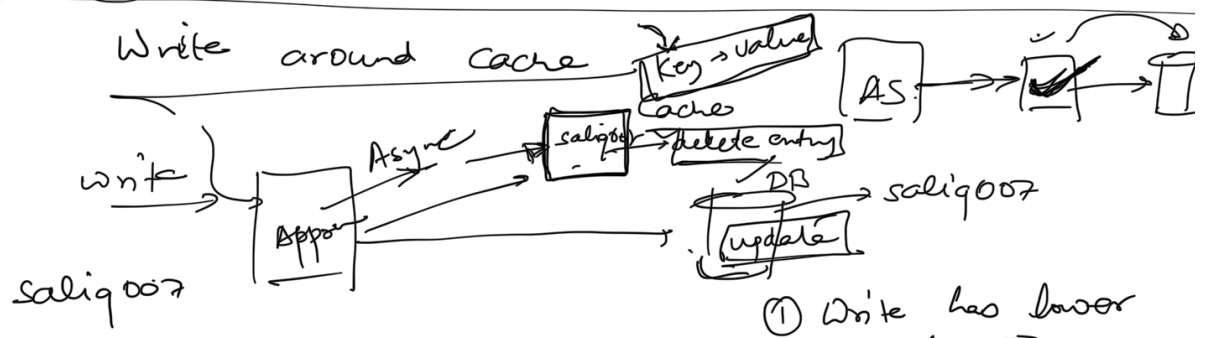 Write around Cache
Key → value
Cache
AS
Async
saliq007
delete entry
write
DB
saliq007
update
saliq007
① Write has lower